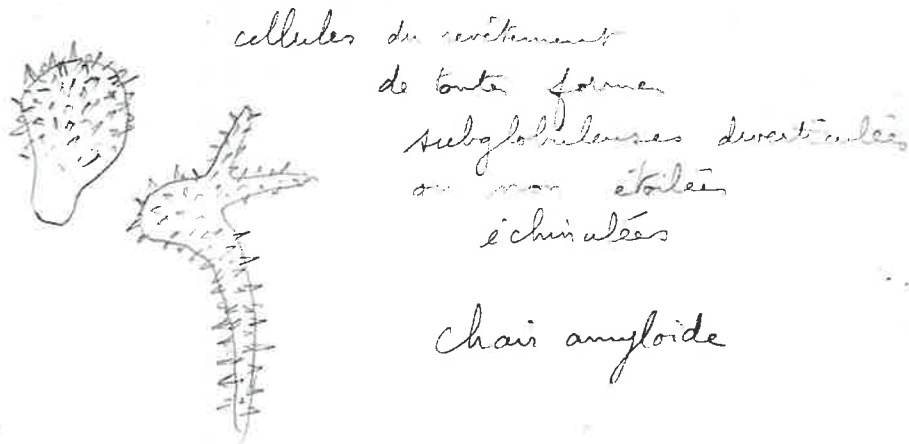 cellules du revêtement
de toutes formes
subglobuleuses diverticulées
ou non étoilées
échinulées
chair amyloïde